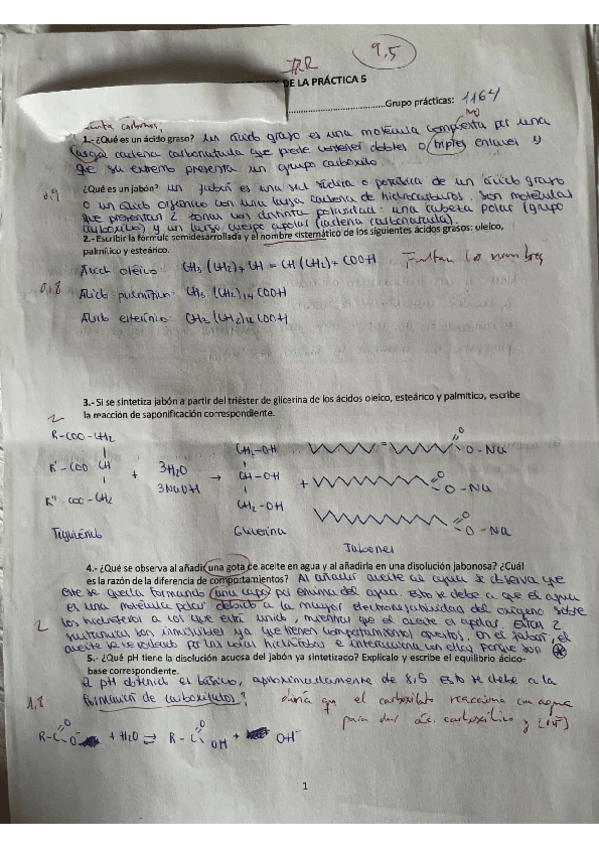 9,5
DE LA PRÁCTICA 5
Grupo prácticas: 1164
1.- ¿Qué es un ácido graso? Un ácido graso es una molécula compuesta por una
larga cadena carbonatada que puede contener dobles o triples enlaces y
que su extremo presenta un grupo carboxilo.
0,9
¿Qué es un jabón? Un jabón es una sal sódica o potásica de un ácido graso
o un ácido orgánico con una larga cadena de hidrocarburos. Son moléculas
que presentan 2 zonas con distinta polaridad: una cabeza polar (grupo
carboxilo) y un largo cuerpo apolar (cadena carbonatada).
2.- Escribir la fórmula semidesarrollada y el nombre sistemático de los siguientes ácidos grasos: oleico,
palmítico y esteárico.
Ácido oleico: CH3 (CH2)7 CH = CH (CH2)7 COOH
Faltan los nombres
0,8
Ácido palmítico: CH3 (CH2)14 COOH
Ácido CH3 (CH2)16 COOH
3.- Si se sintetiza jabón a partir del triéster de glicerina de los ácidos oleico, esteárico y palmítico, escribe
la reacción de saponificación correspondiente.
2
R-COO-CH2
R'-COO CH
R'' COO-CH2
+ 3H2O
3NaOH
→
CH2-OH
CH-OH
CH2-OH
+
O
O-Na
O
O-Na
O
O-Na
Glicerina
Jabones
4.- ¿Qué se observa al añadir una gota de aceite en agua y al añadirla en una disolución jabonosa? ¿Cuál
es la razón de la diferencia de comportamientos? Al añadir aceite al agua se observa que
este se queda formando una capa por encima del agua. Esto se debe a que el agua
es una molécula polar debido a la mayor electronegatividad del oxígeno sobre
los hidrógenos a los que está unido, mientras que el aceite es apolar. Estas 2
sustancias son inmiscibles ya que tienen comportamientos opuestos. En el jabón, el
aceite se ve rodeado por las colas hidrófobas e interacciona con ellas porque son
2
5.- ¿Qué pH tiene la disolución acuosa del jabón ya sintetizado? Explícalo y escribe el equilibrio ácido-
base correspondiente.
El pH obtenido es básico, aproximadamente de 8,5. Esto se debe a la
formación de carboxilatos?
diría que el carboxilato reacciona con agua
para dar ác. carboxílico y
1,8
R-C O O- + H2O ⇌ R-C O OH + OH-
1